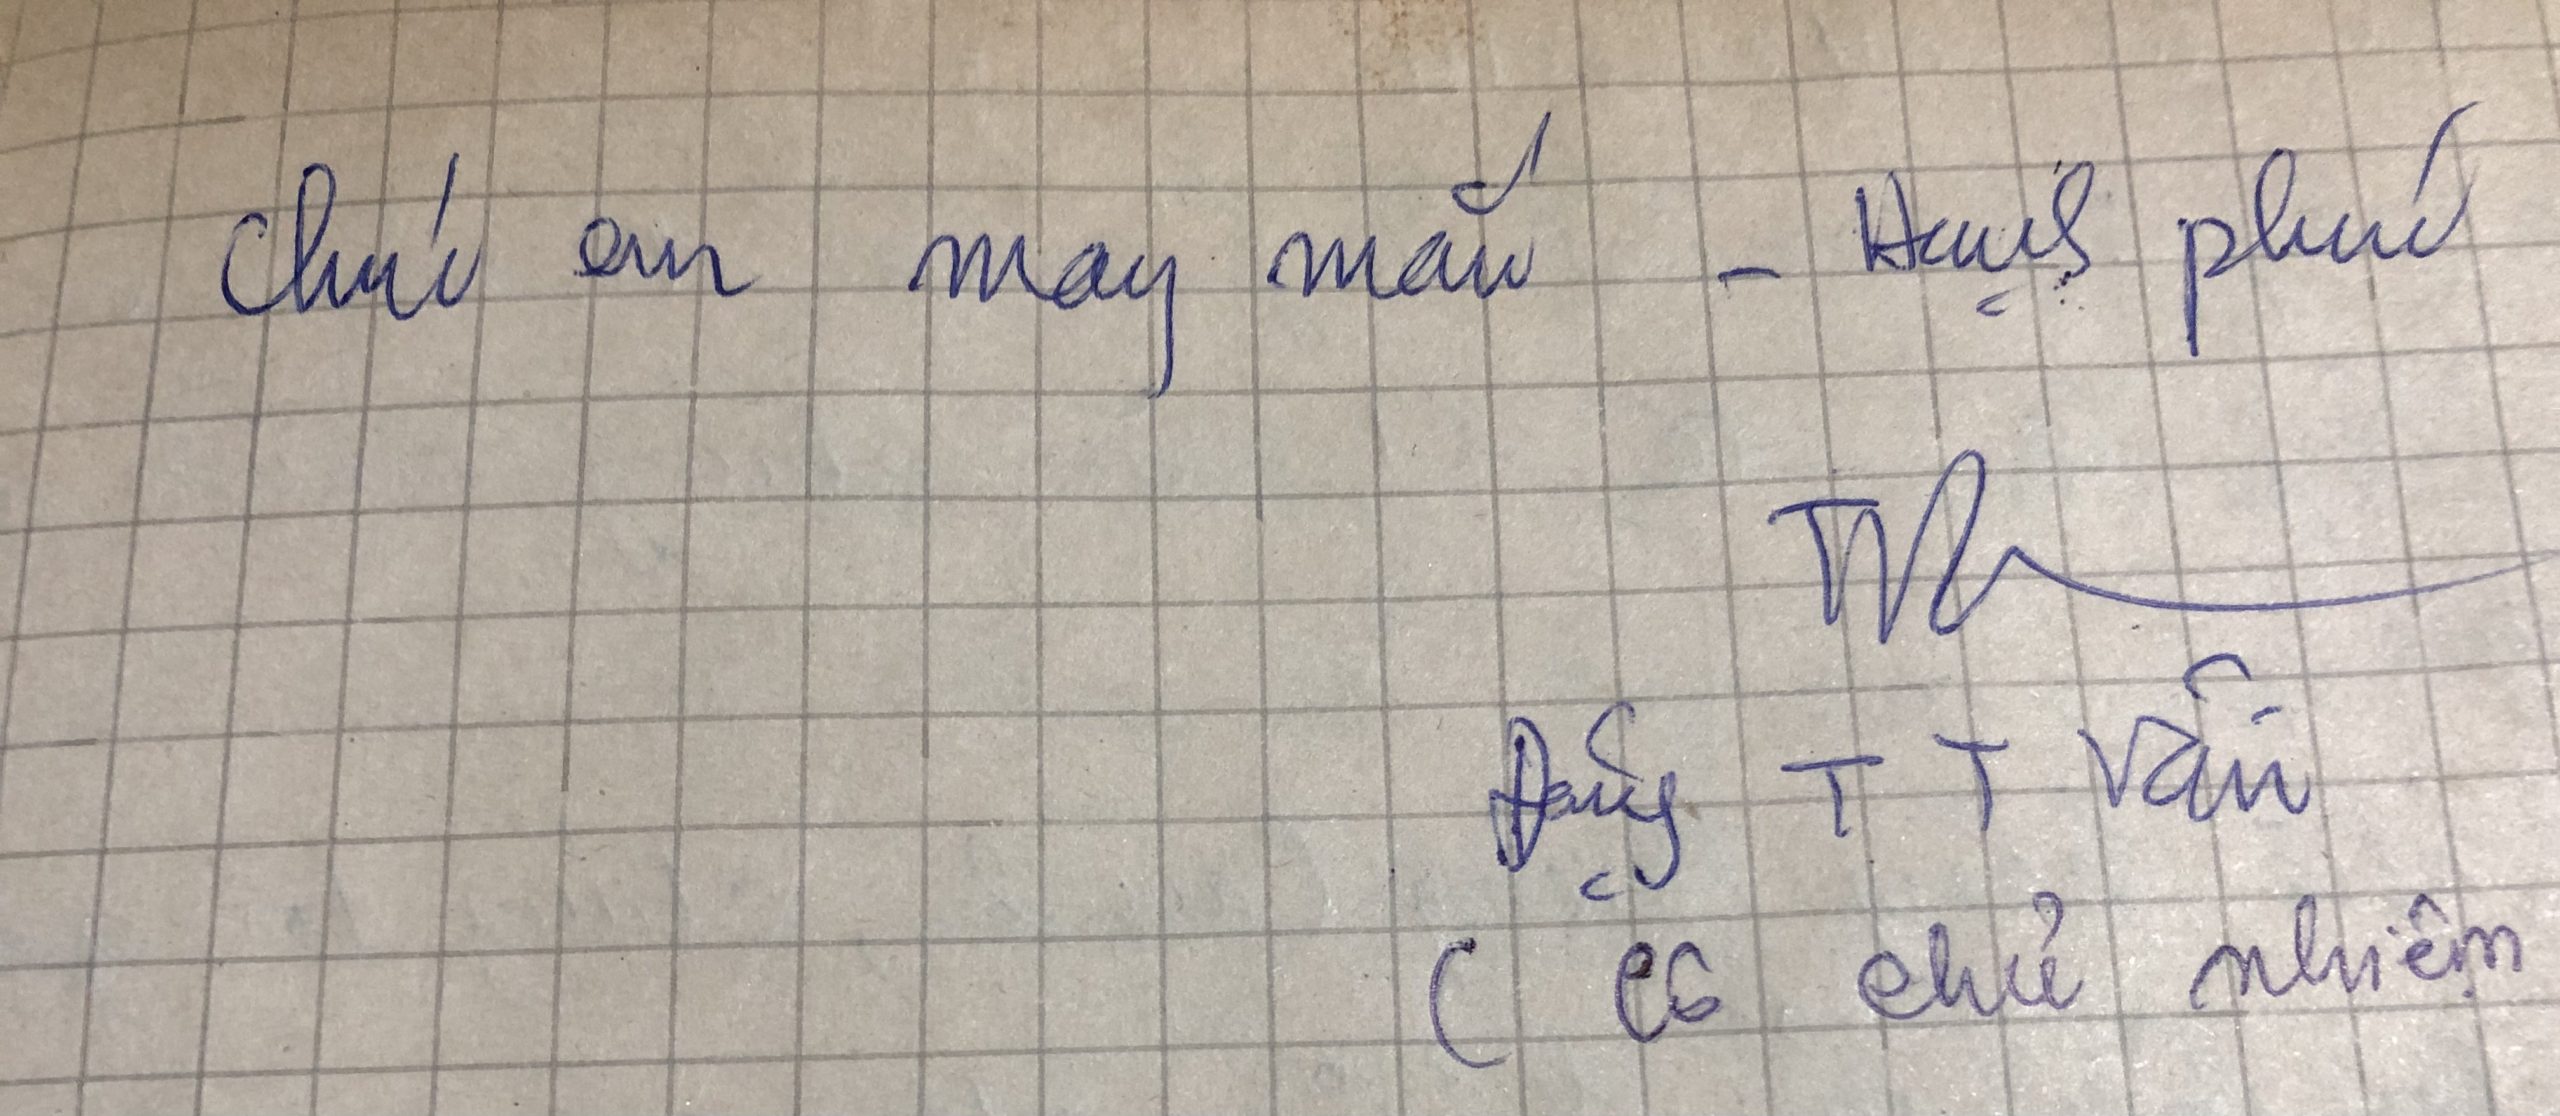 Chúc em may mắn - Hạnh phúc
Đặng T T Vân
( Cô chủ nhiệm